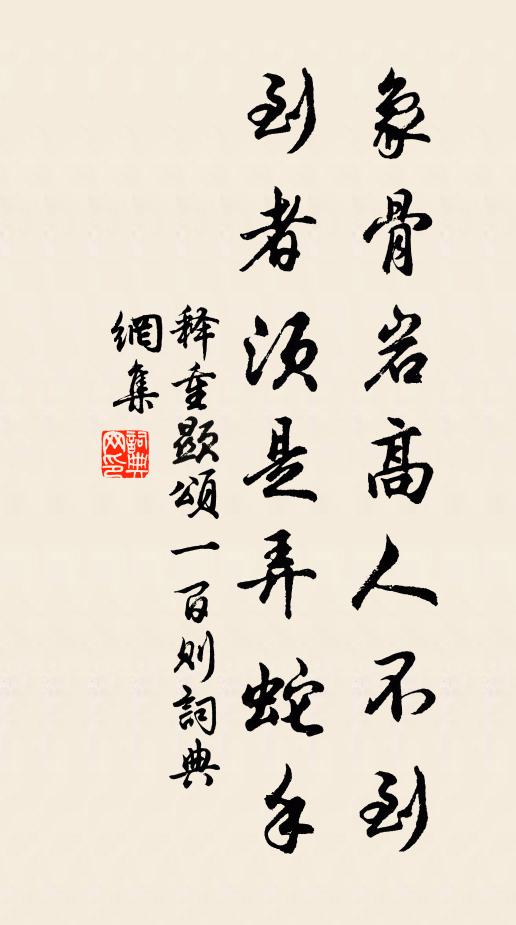 象骨岩高人不到
到者须是弄蛇手
释重顯頌一百则詞典
網集
詞典
网印